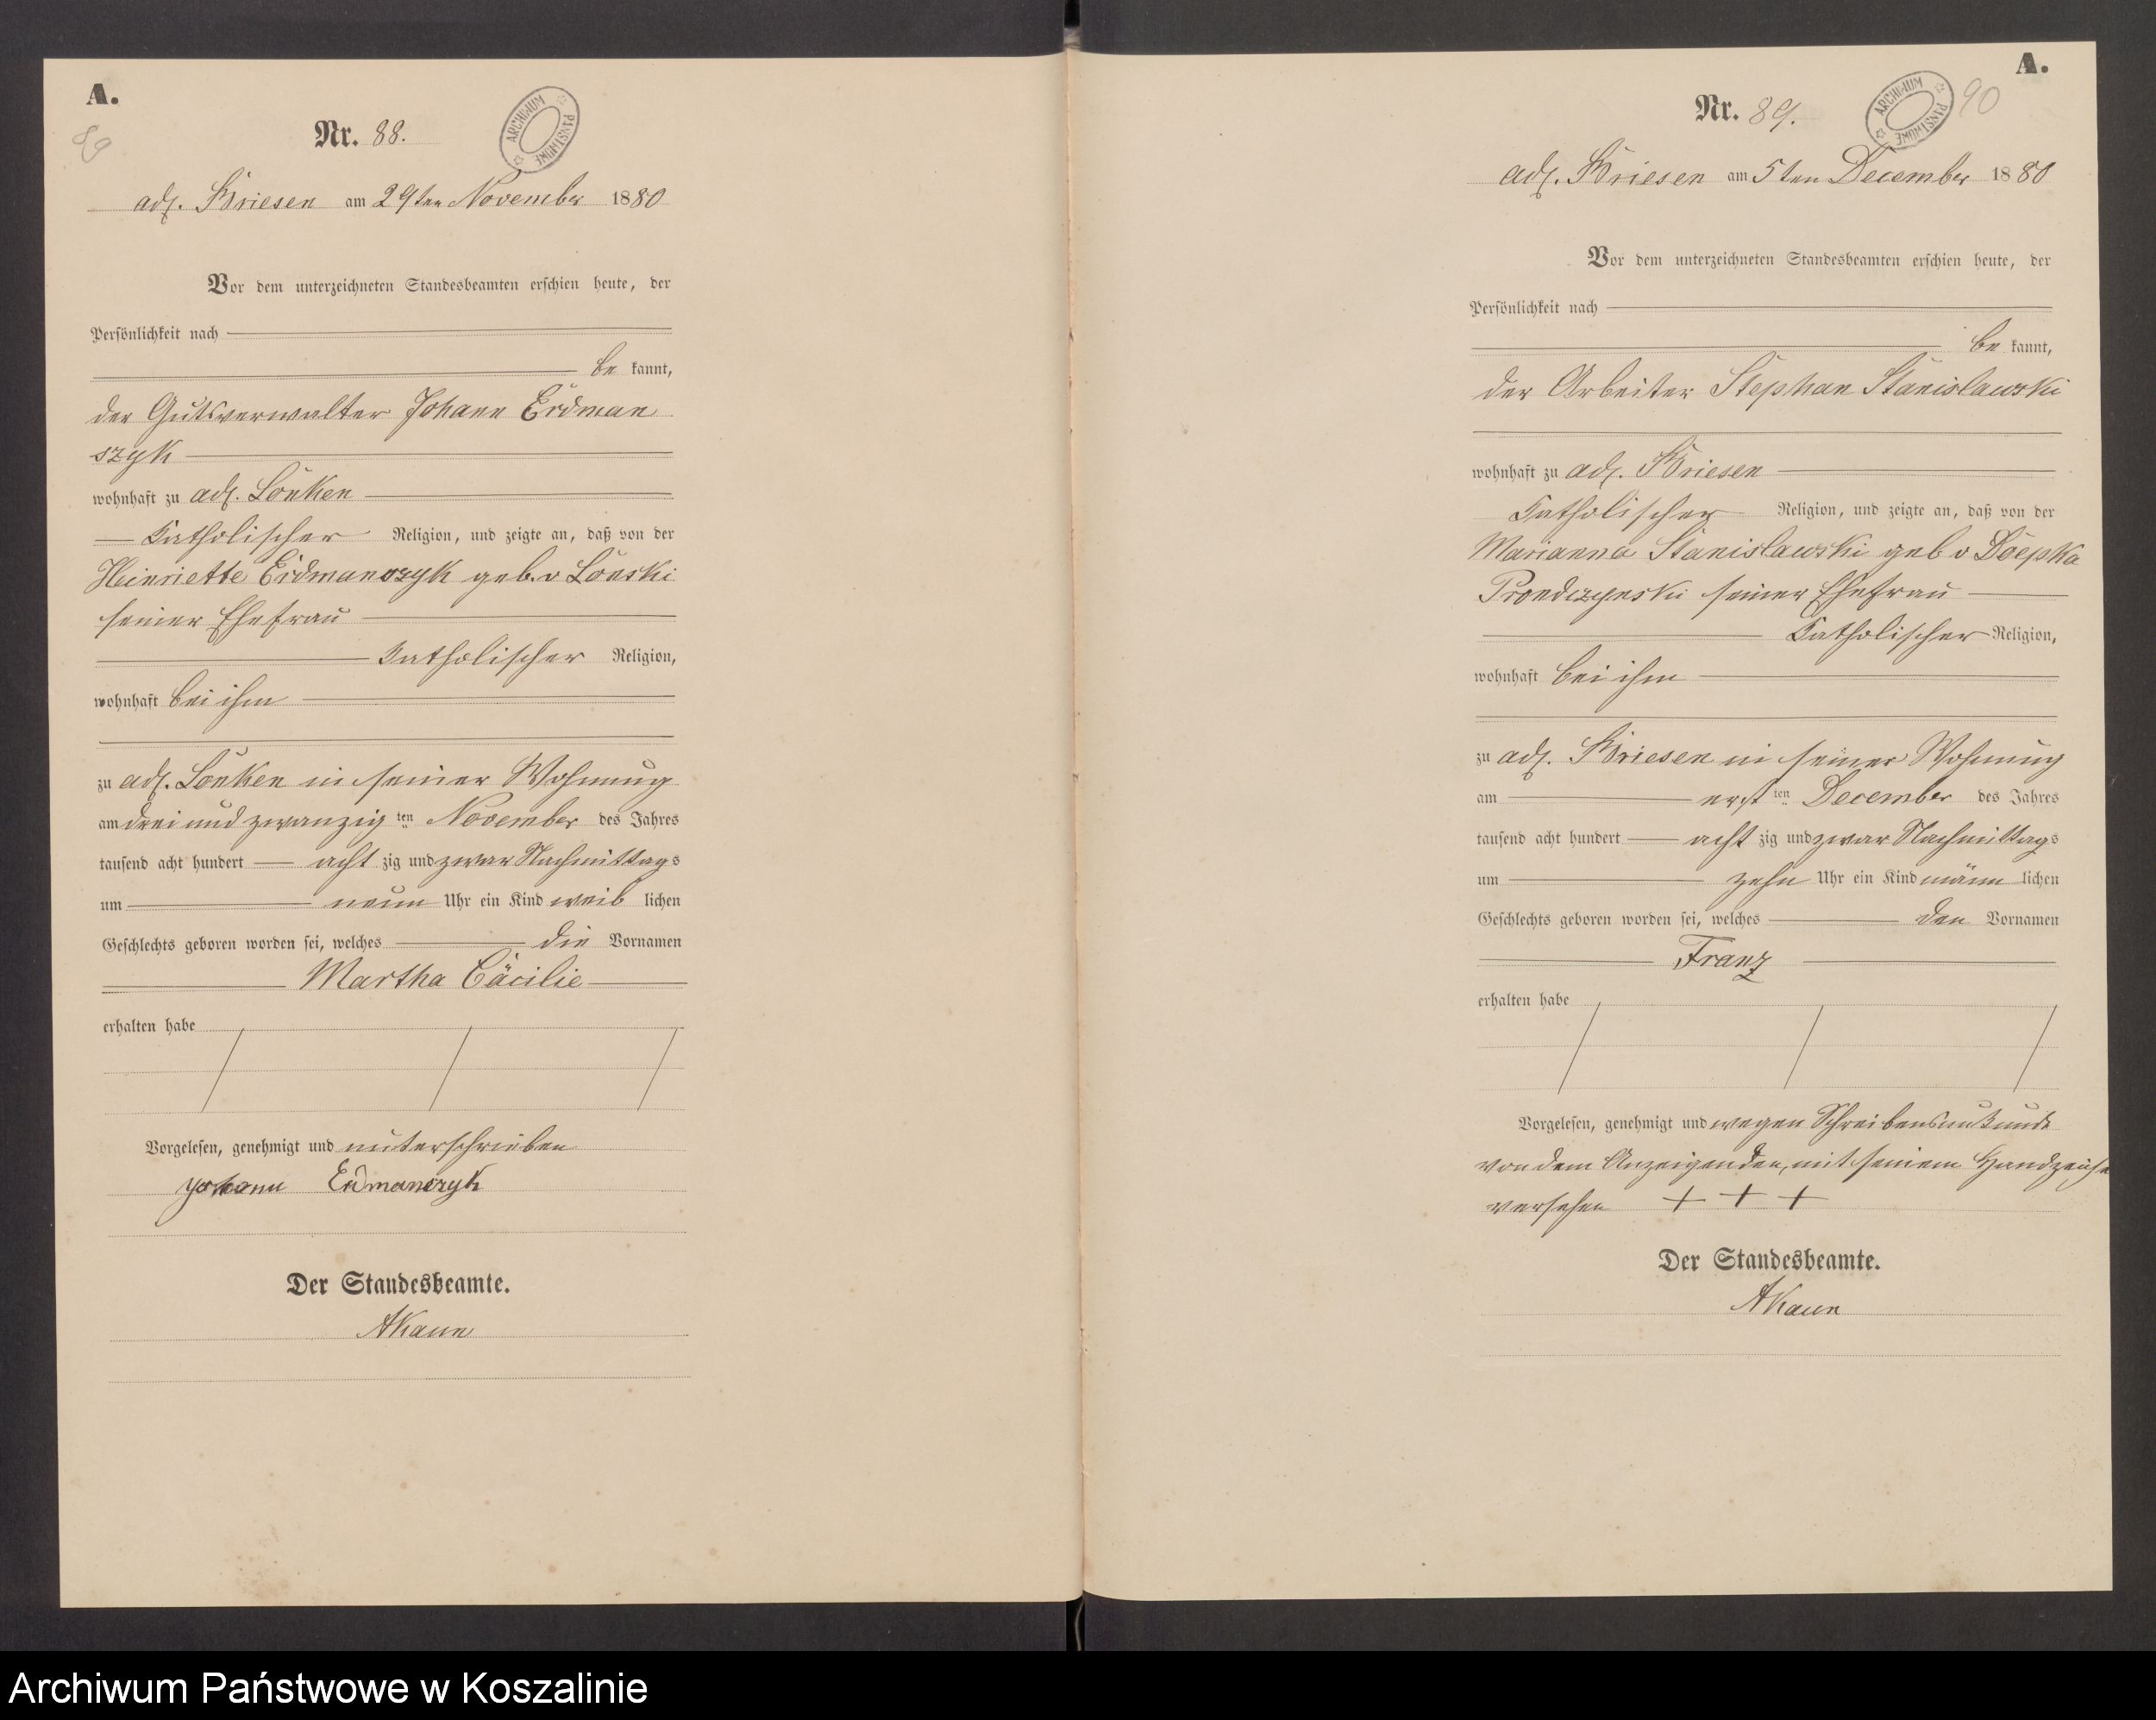 A.
89
Nr. 88.
ARCHIWUM PAŃSTWOWE
adl. Briesen am 29ten November 1880
Vor dem unterzeichneten Standesbeamten erschien heute, der
Persönlichkeit nach
be kannt,
der Gutsverwalter Johann Erdman
szyk
wohnhaft zu adl. Lonken
Katholischer Religion, und zeigte an, daß von der
Heinriette Erdmanszyk geb. v Lonski
seiner Ehefrau
Katholischer Religion,
wohnhaft bei ihm
zu adl. Lonken in seiner Wohnung
am drei und zwanzig ten November des Jahres
tausend acht hundert acht zig und zwar Nachmittags
um neun Uhr ein Kind weib lichen
Geschlechts geboren worden sei, welches die Vornamen
Martha Cäcilie
erhalten habe
Vorgelesen, genehmigt und unterschrieben
Johann Erdmanczyk
Der Standesbeamte.
AKaun
A.
90
Nr. 89.
ARCHIWUM PAŃSTWOWE
adl. Briesen am 5ten December 1880
Vor dem unterzeichneten Standesbeamten erschien heute, der
Persönlichkeit nach
be kannt,
der Arbeiter Stephan Stanislawski
wohnhaft zu adl. Briesen
Katholischer Religion, und zeigte an, daß von der
Marianna Stanislawski geb v
Prondzynski seiner Ehefrau
Katholischer Religion,
wohnhaft bei ihm
zu adl. Briesen in seiner Wohnung
am erst ten December des Jahres
tausend acht hundert acht zig und zwar Nachmittags
um zehn Uhr ein Kind männ lichen
Geschlechts geboren worden sei, welches den Vornamen
Franz
erhalten habe
Vorgelesen, genehmigt und wegen Schreibensunkunde
von dem Anzeigenden, mit seinem Handzeichen
versehen + + +
Der Standesbeamte.
AKaun
Archiwum Państwowe w Koszalinie